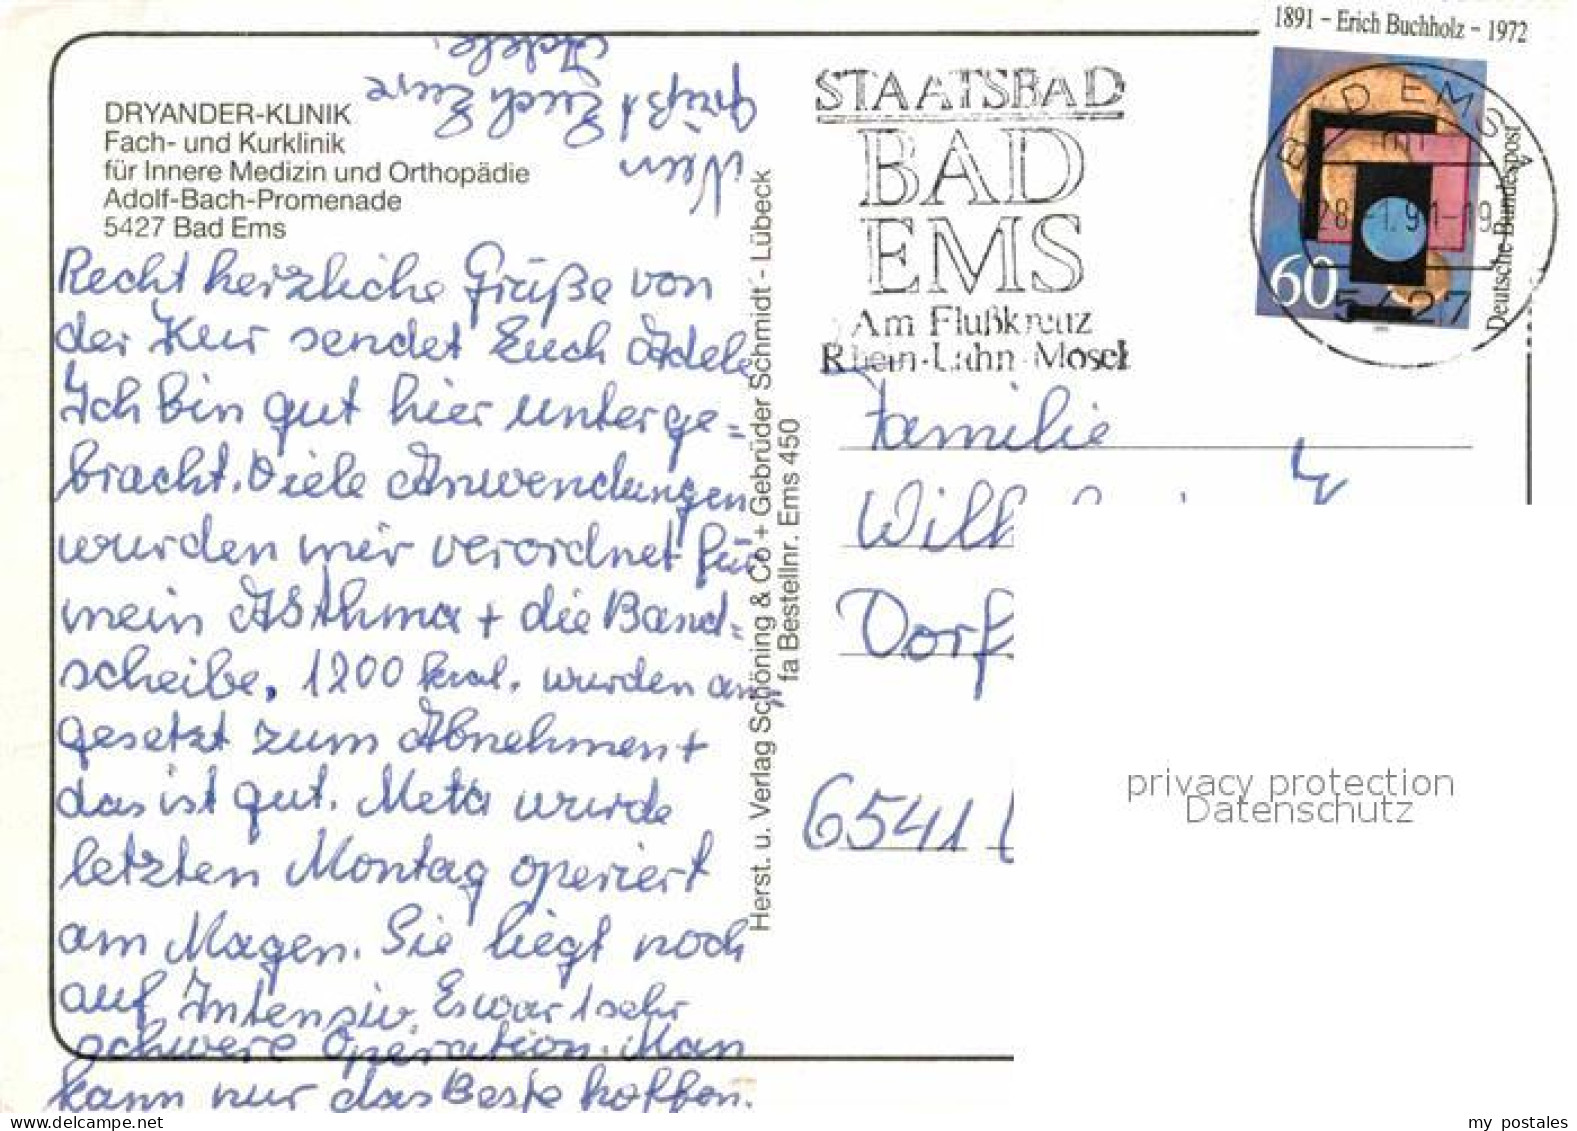 DRYANDER-KLINIK
Fach- und Kurklinik
für Innere Medizin und Orthopädie
Adolf-Bach-Promenade
5427 Bad Ems
Recht herzliche Grüße von
der Kur sendet Euch Adele
Ich bin gut hier unterge=
bracht. Viele Anwendungen
wurden mir verordnet für
mein Asthma + die Band=
scheibe. 1200 kcal. wurden an=
gesetzt zum Abnehmen +
das ist gut. Meta wurde
letzten Montag operiert
am Magen. Sie liegt noch
auf Intensiv. Es war 1 sehr
schwere Operation. Man
kann nur das Beste hoffen.
grüßt Euch Eure
Adele.
Herst. u. Verlag Schöning & Co + Gebrüder Schmidt - Lübeck
fa Bestellnr. Ems 450
STAATSBAD
BAD
EMS
Am Flußkreuz
Rhein-Lahn-Mosel
1891 – Erich Buchholz – 1972
60
Deutsche Bundespost
BAD EMS 1
mn
28.-1.91-19
5427
Familie
Dorf
6541
privacy protection
Datenschutz
www.delcampe.net
my postales